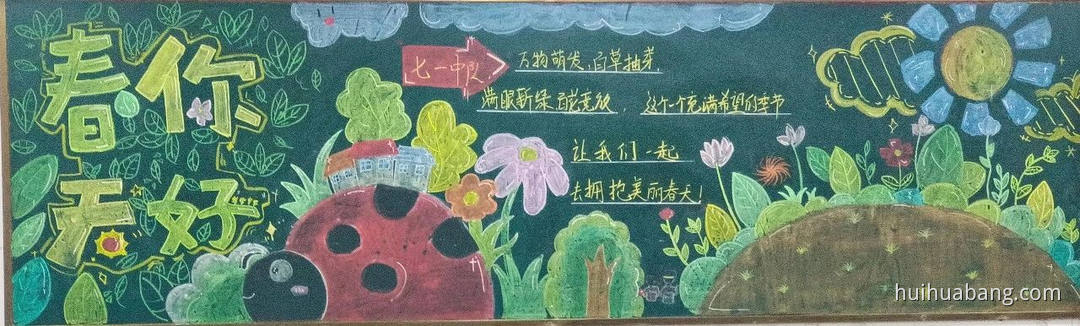 春天
你好
七一中队
万物萌发,百草抽芽,
满眼新绿 , 一个充满希望的季节
让我们一起
去拥抱美丽春天!
huihuabang.com